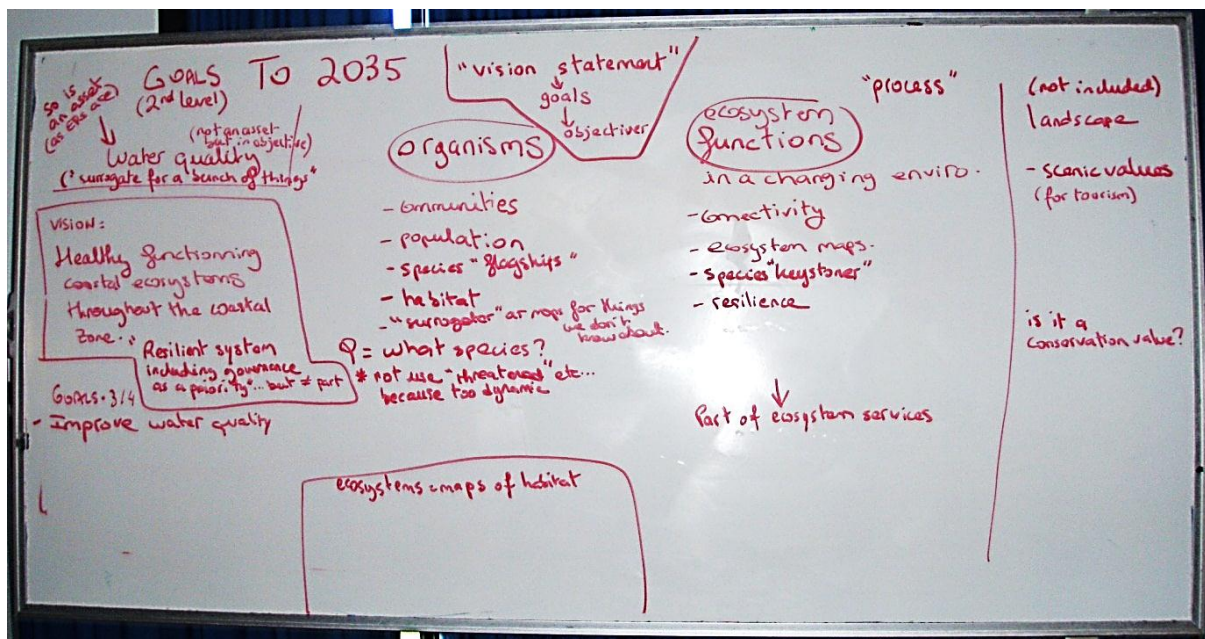 GOALS TO 2035
(2nd level)
so is
an asset
(as EFs are)
(not an asset
but in objective)
Water quality
("surrogate for a bunch of things"
VISION:
Healthy functionning
coastal ecosystems
throughout the coastal
zone...
Resilient system
including governance
as a priority"... but ≠ part
GOALS. 3/4
- Improve water quality
"vision statement"
goals
objectives
organisms
- communities
- population
- species "flagships"
- habitat
- "surrogates" as maps for things
we don't
know about.
Q = what species?
* not use "threatened" etc...
because too dynamic
ecosystems = maps of habitat
"process"
ecosystem
functions
in a changing enviro.
- connectivity
- ecosystem maps.
- species "keystones"
- resilience
Part of ecosystem services
(not included)
landscape
- scenic values
(for tourism)
is it a
conservation value?